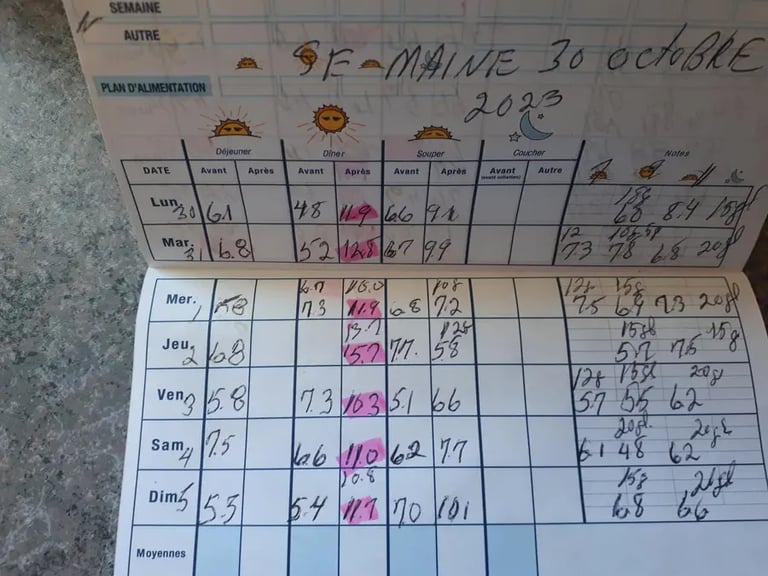 SEMAINE
AUTRE
SEMAINE 30 OCTOBRE
PLAN D'ALIMENTATION
2023
Déjeuner Dîner Souper Coucher Notes
DATE Avant Après Avant Après Avant Après Avant Autre
15g
Lun. 30 6.1 4.8 11.9 6.6 9.1 6.8 8.4
12
Mar. 31 6.8 5.2 12.8 6.7 9.9 7.3 7.8 6.8
6.7 10g 12g 15g
Mer. 1 5.8 7.3 11.9 6.8 7.2 7.5 6.9 7.3
13.7
Jeu. 2 6.8 15.7 7.7 5.8 5.7 7.5
12g
Ven. 3 5.8 7.3 10.3 5.1 6.6 5.7 5.5 6.2
Sam. 4 7.5 6.6 11.0 6.2 7.7 6.1 4.8 6.2
10.8 15g
Dim. 5 5.3 5.4 11.7 7.0 10.1 6.8 6.6
Moyennes